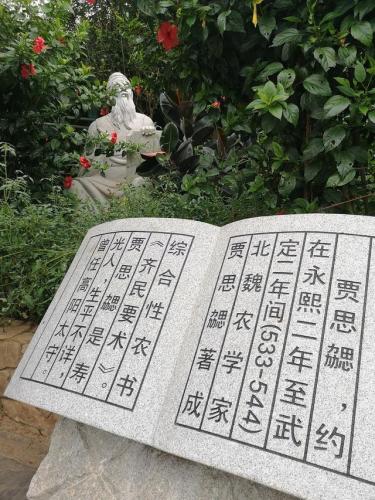 贾思勰，约
在永熙二年至武
定二年间(533-544)
北魏农学家
贾思勰著成
综合性农书
《齐民要术》。
贾思勰是寿
光人，生平不详，
曾任高阳太守。